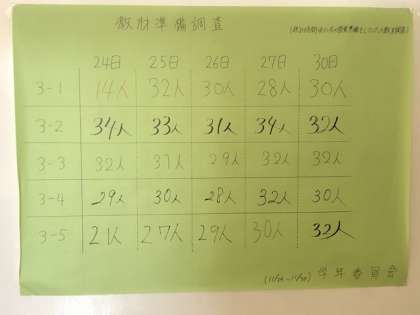 教材準備調査
24日 25日 26日 27日 30日
3-1 14人 32人 30人 28人 30人
3-2 34人 33人 31人 34人 32人
3-3 32人 31人 29人 32人 32人
3-4 29人 30人 28人 32人 30人
3-5 21人 27人 29人 30人 32人
学年委員会